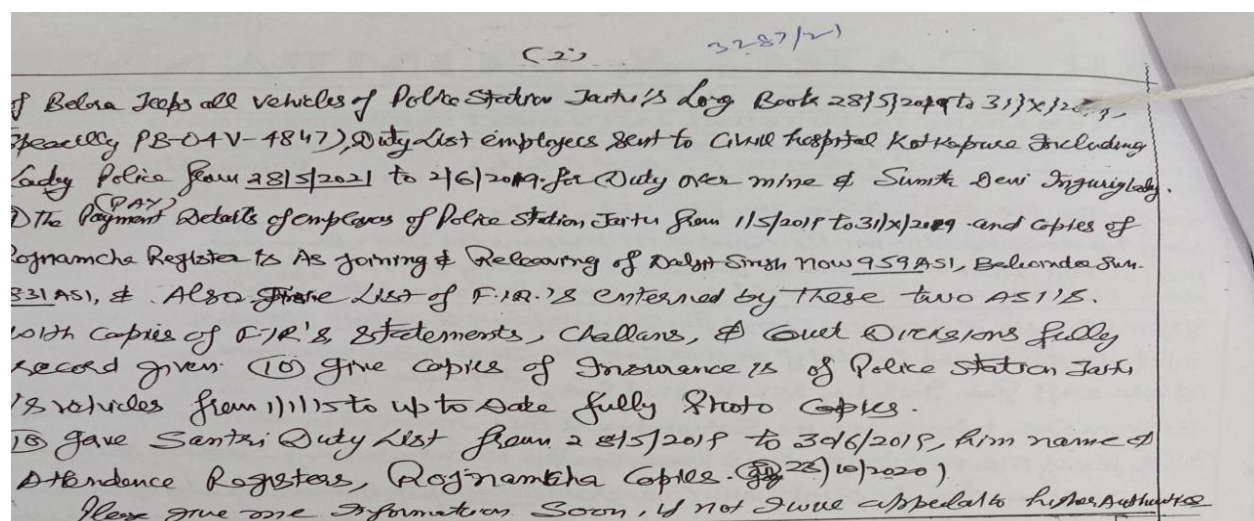 (2)
3287/21
of Belora Jeeps all vehicles of Police Station Jaitu's Long Book 28/5/2019 to 31/X/
Speacilly PB-04V-4847), Duty List employees sent to Civil hospital Kotkapura Including
Lady Police from 28/5/2021 to 2/6/2019 for Duty over mine & Sumit Devi Lady.
(PAY)
The Payment Details of employees of Police Station Jaitu from 1/5/2019 to 31/X/2019 and Copies of
Rojnamcha Register is As Joining & Releaving of Daljit Singh now 959 ASI,
331 ASI, & Also give List of F.I.R.'s enterned by These two ASI'S.
with Copies of F.I.R's, Statements, Challans, & Court Dicksions fully
record given. (10) give Copies of Insurance is of Police Station Jaitu
's vehicles from 1/1/15 to up to Date fully Photo Copies.
gave Santri Duty List from 28/5/2019 to 30/6/2019, him name &
Attendance Registers, Rojnamcha Copies. 23/10/2020)
Please give me Information Soon, if not I will appedal to higher Authorities